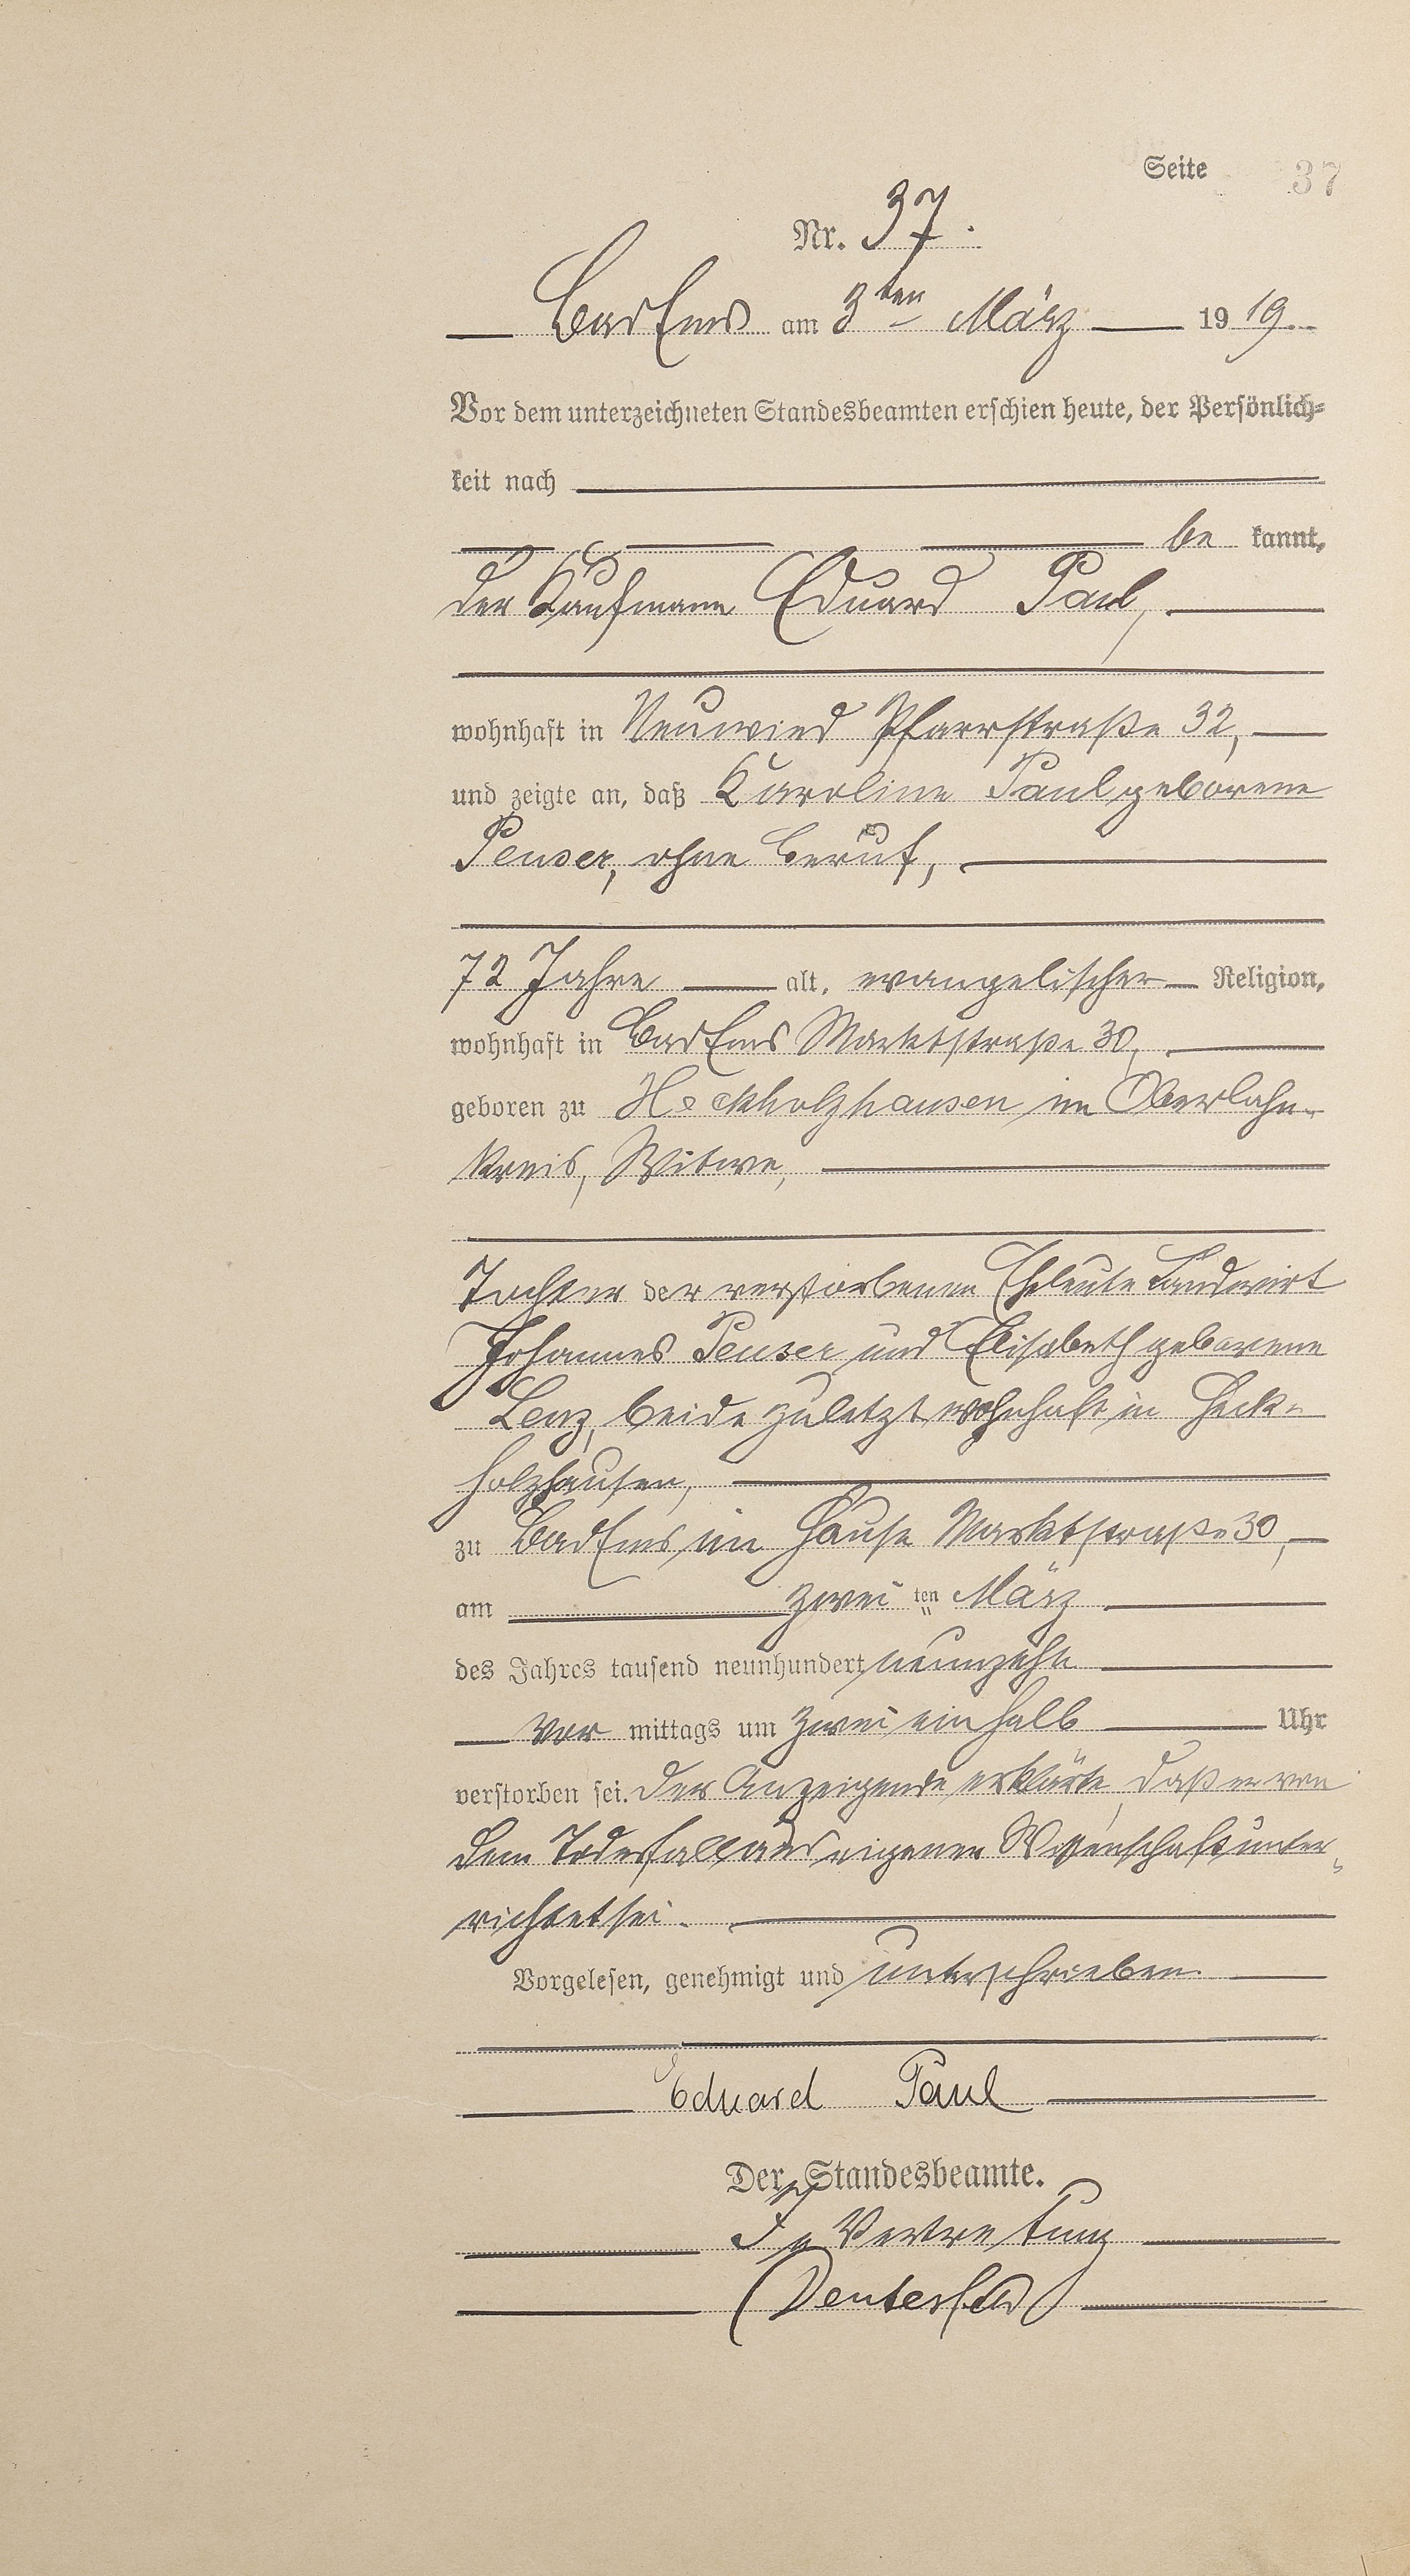 Seite 37
Nr. 37.
Bad Ems am 3ten März 1919.
Vor dem unterzeichneten Standesbeamten erschien heute, der Persönlich-
keit nach
be kannt,
der Kaufmann Eduard Paul,
wohnhaft in Neuwied Pfarrstraße 32,
und zeigte an, daß Karoline Paul geborene
Peuser, ohne Beruf,
72 Jahre alt, evangelischer Religion,
wohnhaft in Bad Ems Marktstraße 30,
geboren zu Heckholzhausen im Oberlahn-
kreis, Witwe,
Tochter der verstorbenen Eheleute Landwirt
Johannes Peuser und Elisabeth geborene
Lenz, beide zuletzt wohnhaft in Heck-
holzhausen,
zu Bad Ems im Hause Marktstraße 30,
am zwei ten März
des Jahres tausend neunhundert neunzehn
Vor mittags um zwei ein halb Uhr
verstorben sei. Der Anzeigende erklärte, daß er von
dem Todesfall aus eigener Wissenschaft unter-
richtet sei.
Vorgelesen, genehmigt und unterschrieben.
Eduard Paul
Der Standesbeamte.
In Vertretung